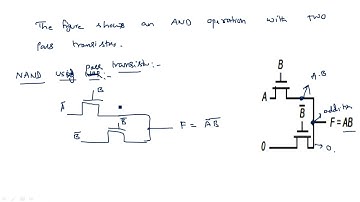 The figure shows an AND operation with two
pass transistor.
NAND using pass transistr:-
B
A̅
B̅
B̅
F = A̅B̅
B
A.B
A
B̅
additn
F = AB
0
0.